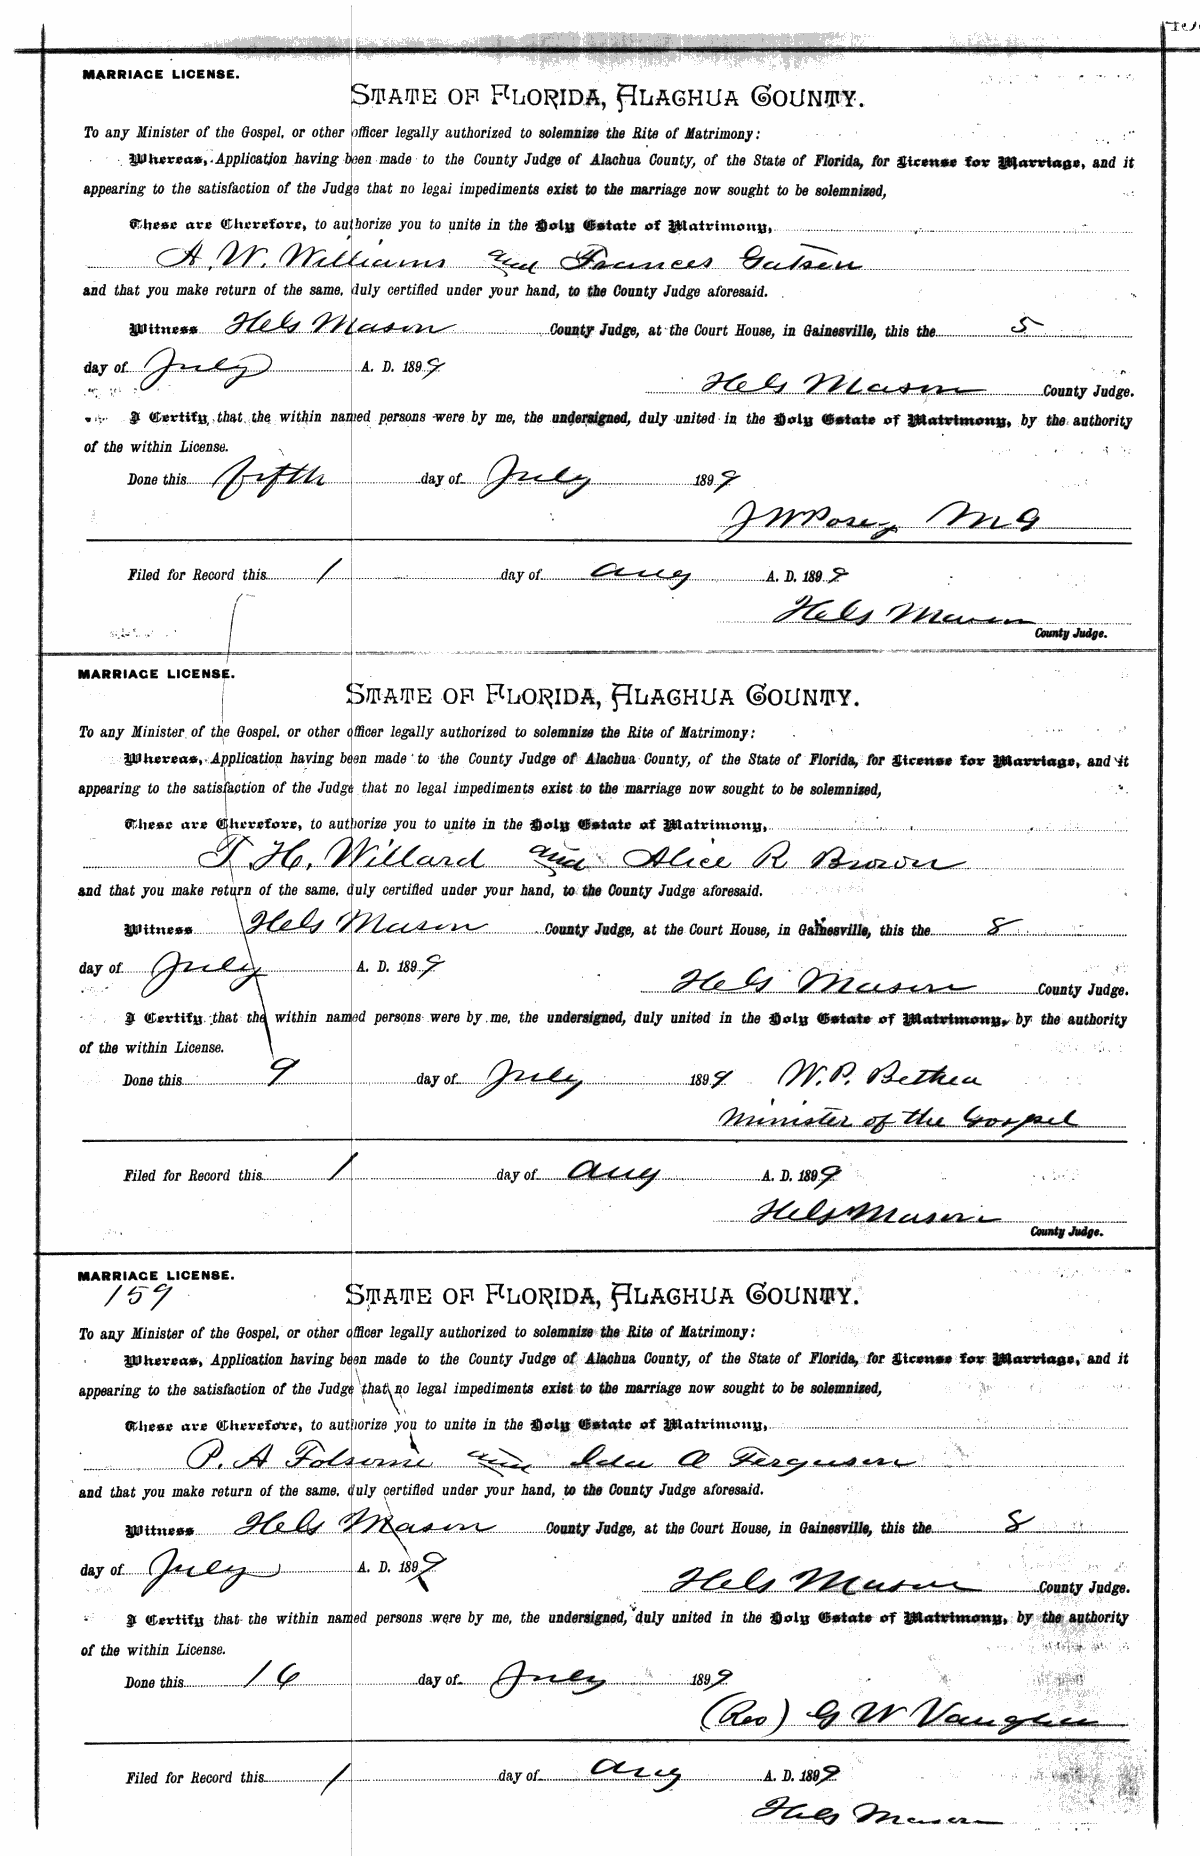 MARRIAGE LICENSE.
STATE OF FLORIDA, ALACHUA COUNTY.
To any Minister of the Gospel, or other officer legally authorized to solemnize the Rite of Matrimony:
Whereas, Application having been made to the County Judge of Alachua County, of the State of Florida, for License for Marriage, and it
appearing to the satisfaction of the Judge that no legal impediments exist to the marriage now sought to be solemnized,
These are Therefore, to authorize you to unite in the Holy Estate of Matrimony,
A. W. Williams and Frances Gatsen
and that you make return of the same, duly certified under your hand, to the County Judge aforesaid.
Witness Hels Mason County Judge, at the Court House, in Gainesville, this the 5
day of July A. D. 1899
Hels Mason County Judge.
I Certify, that the within named persons were by me, the undersigned, duly united in the Holy Estate of Matrimony, by the authority
of the within License.
Done this fifth day of July 1899
J W Posey M G
Filed for Record this 1 day of Aug A. D. 1899
Hels Mason
County Judge.
MARRIAGE LICENSE.
STATE OF FLORIDA, ALACHUA COUNTY.
To any Minister of the Gospel, or other officer legally authorized to solemnize the Rite of Matrimony:
Whereas, Application having been made to the County Judge of Alachua County, of the State of Florida, for License for Marriage, and it
appearing to the satisfaction of the Judge that no legal impediments exist to the marriage now sought to be solemnized,
These are Therefore, to authorize you to unite in the Holy Estate of Matrimony,
T. H. Willard and Alice R Brown
and that you make return of the same, duly certified under your hand, to the County Judge aforesaid.
Witness Hels Mason County Judge, at the Court House, in Gainesville, this the 8
day of July A. D. 1899
Hels Mason County Judge.
I Certify that the within named persons were by me, the undersigned, duly united in the Holy Estate of Matrimony, by the authority
of the within License.
Done this 9 day of July 1899 W. P. Bethea
Minister of the Gospel
Filed for Record this 1 day of Aug A. D. 1899
Hels Mason
County Judge.
MARRIAGE LICENSE.
159
STATE OF FLORIDA, ALACHUA COUNTY.
To any Minister of the Gospel, or other officer legally authorized to solemnize the Rite of Matrimony:
Whereas, Application having been made to the County Judge of Alachua County, of the State of Florida, for License for Marriage, and it
appearing to the satisfaction of the Judge that no legal impediments exist to the marriage now sought to be solemnized,
These are Therefore, to authorize you to unite in the Holy Estate of Matrimony,
P. A Folsome and Ida A Ferguson
and that you make return of the same, duly certified under your hand, to the County Judge aforesaid.
Witness Hels Mason County Judge, at the Court House, in Gainesville, this the 8
day of July A. D. 1899
Hels Mason County Judge.
I Certify that the within named persons were by me, the undersigned, duly united in the Holy Estate of Matrimony, by the authority
of the within License.
Done this 16 day of July 1899
(Rev) G W Vaughn
Filed for Record this 1 day of Aug A. D. 1899
Hels Mason